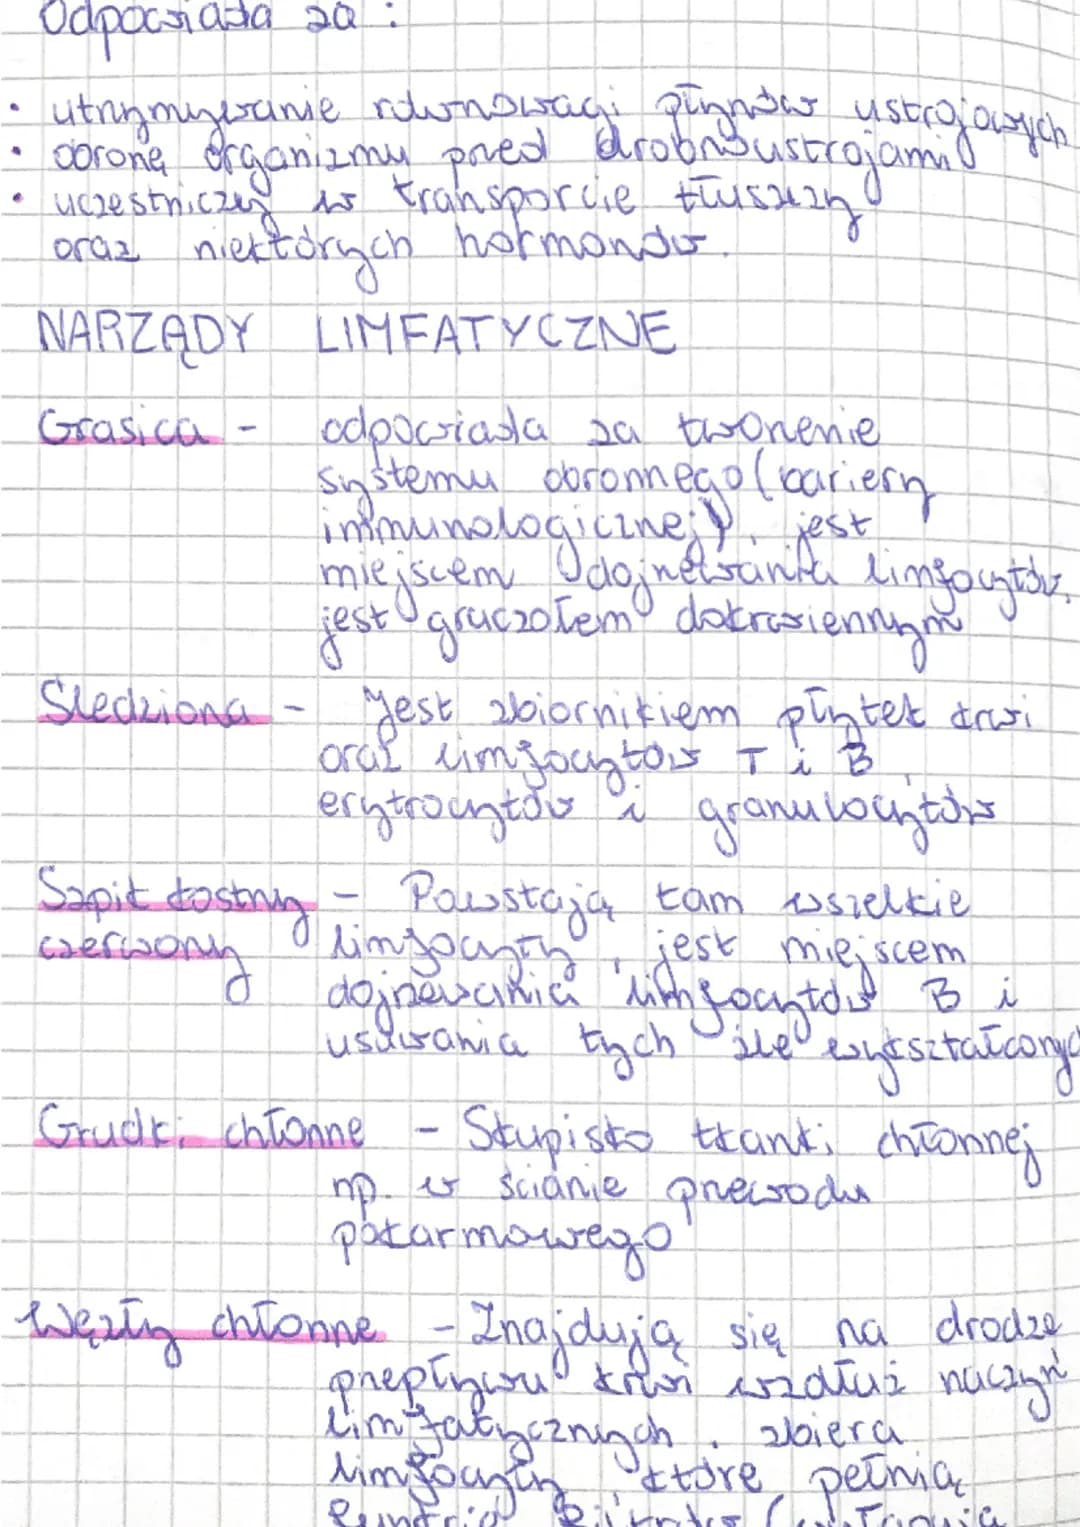 Odpowiada za :
• utrzymywanie równowagi płynów ustrojowych
• obronę organizmu przed drobnoustrojami
• uczestniczy w transporcie tłuszczy
oraz niektórych hormonów.
NARZĄDY LIMFATYCZNE
Grasica - odpowiada za tworzenie
systemu obronnego (bariery
immunologicznej), jest
miejscem dojrzewania limfocytów,
jest gruczołem dokrwiennym
Śledziona - Jest zbiornikiem płytek krwi
oraz limfocytów T i B,
erytrocytów i granulocytów
Szpik kostny - Powstają tam wszelkie
czerwony limfocyty, jest miejscem
dojrzewania limfocytów B i
usuwania tych źle wykształconyc
Grudki chłonne - Skupisko tkanki chłonnej
np. w ścianie przewodu
pokarmowego
Węzły chłonne - Znajdują się na drodze
przepływu krwi wzdłuż naczyń
limfatycznych, zbiera
limfocyty, które pełnią